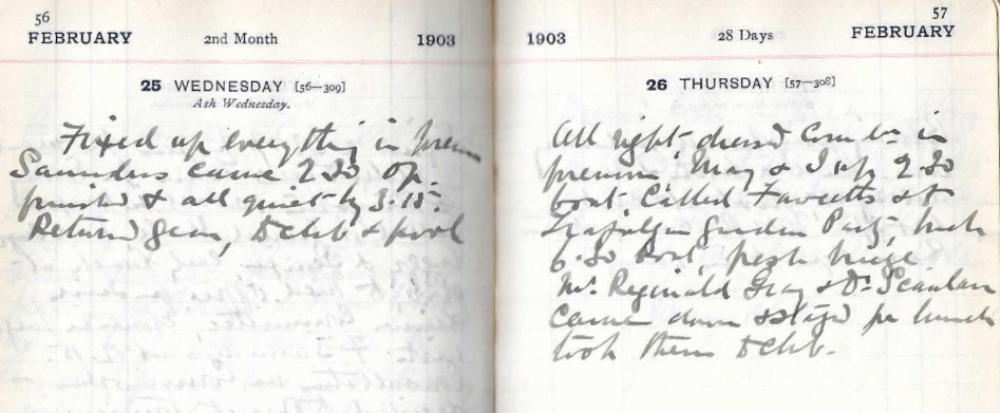 56
FEBRUARY 2nd Month 1903
25 WEDNESDAY [56—309]
Ash Wednesday.
Fixed up everything in
Saunders came 2.30 Op.
finished & all quiet by 3.15.
Return to club & pool
57
1903 28 Days FEBRUARY
26 THURSDAY [57—308]
All right, dressed in
May & I up 2.30
boat. Called Fawcetts &
Trafalgar Garden Party, back
6.30 boat,
Mr. Reginald Gray & Dr. Scanlan
came down & stayed for lunch
took them to club.